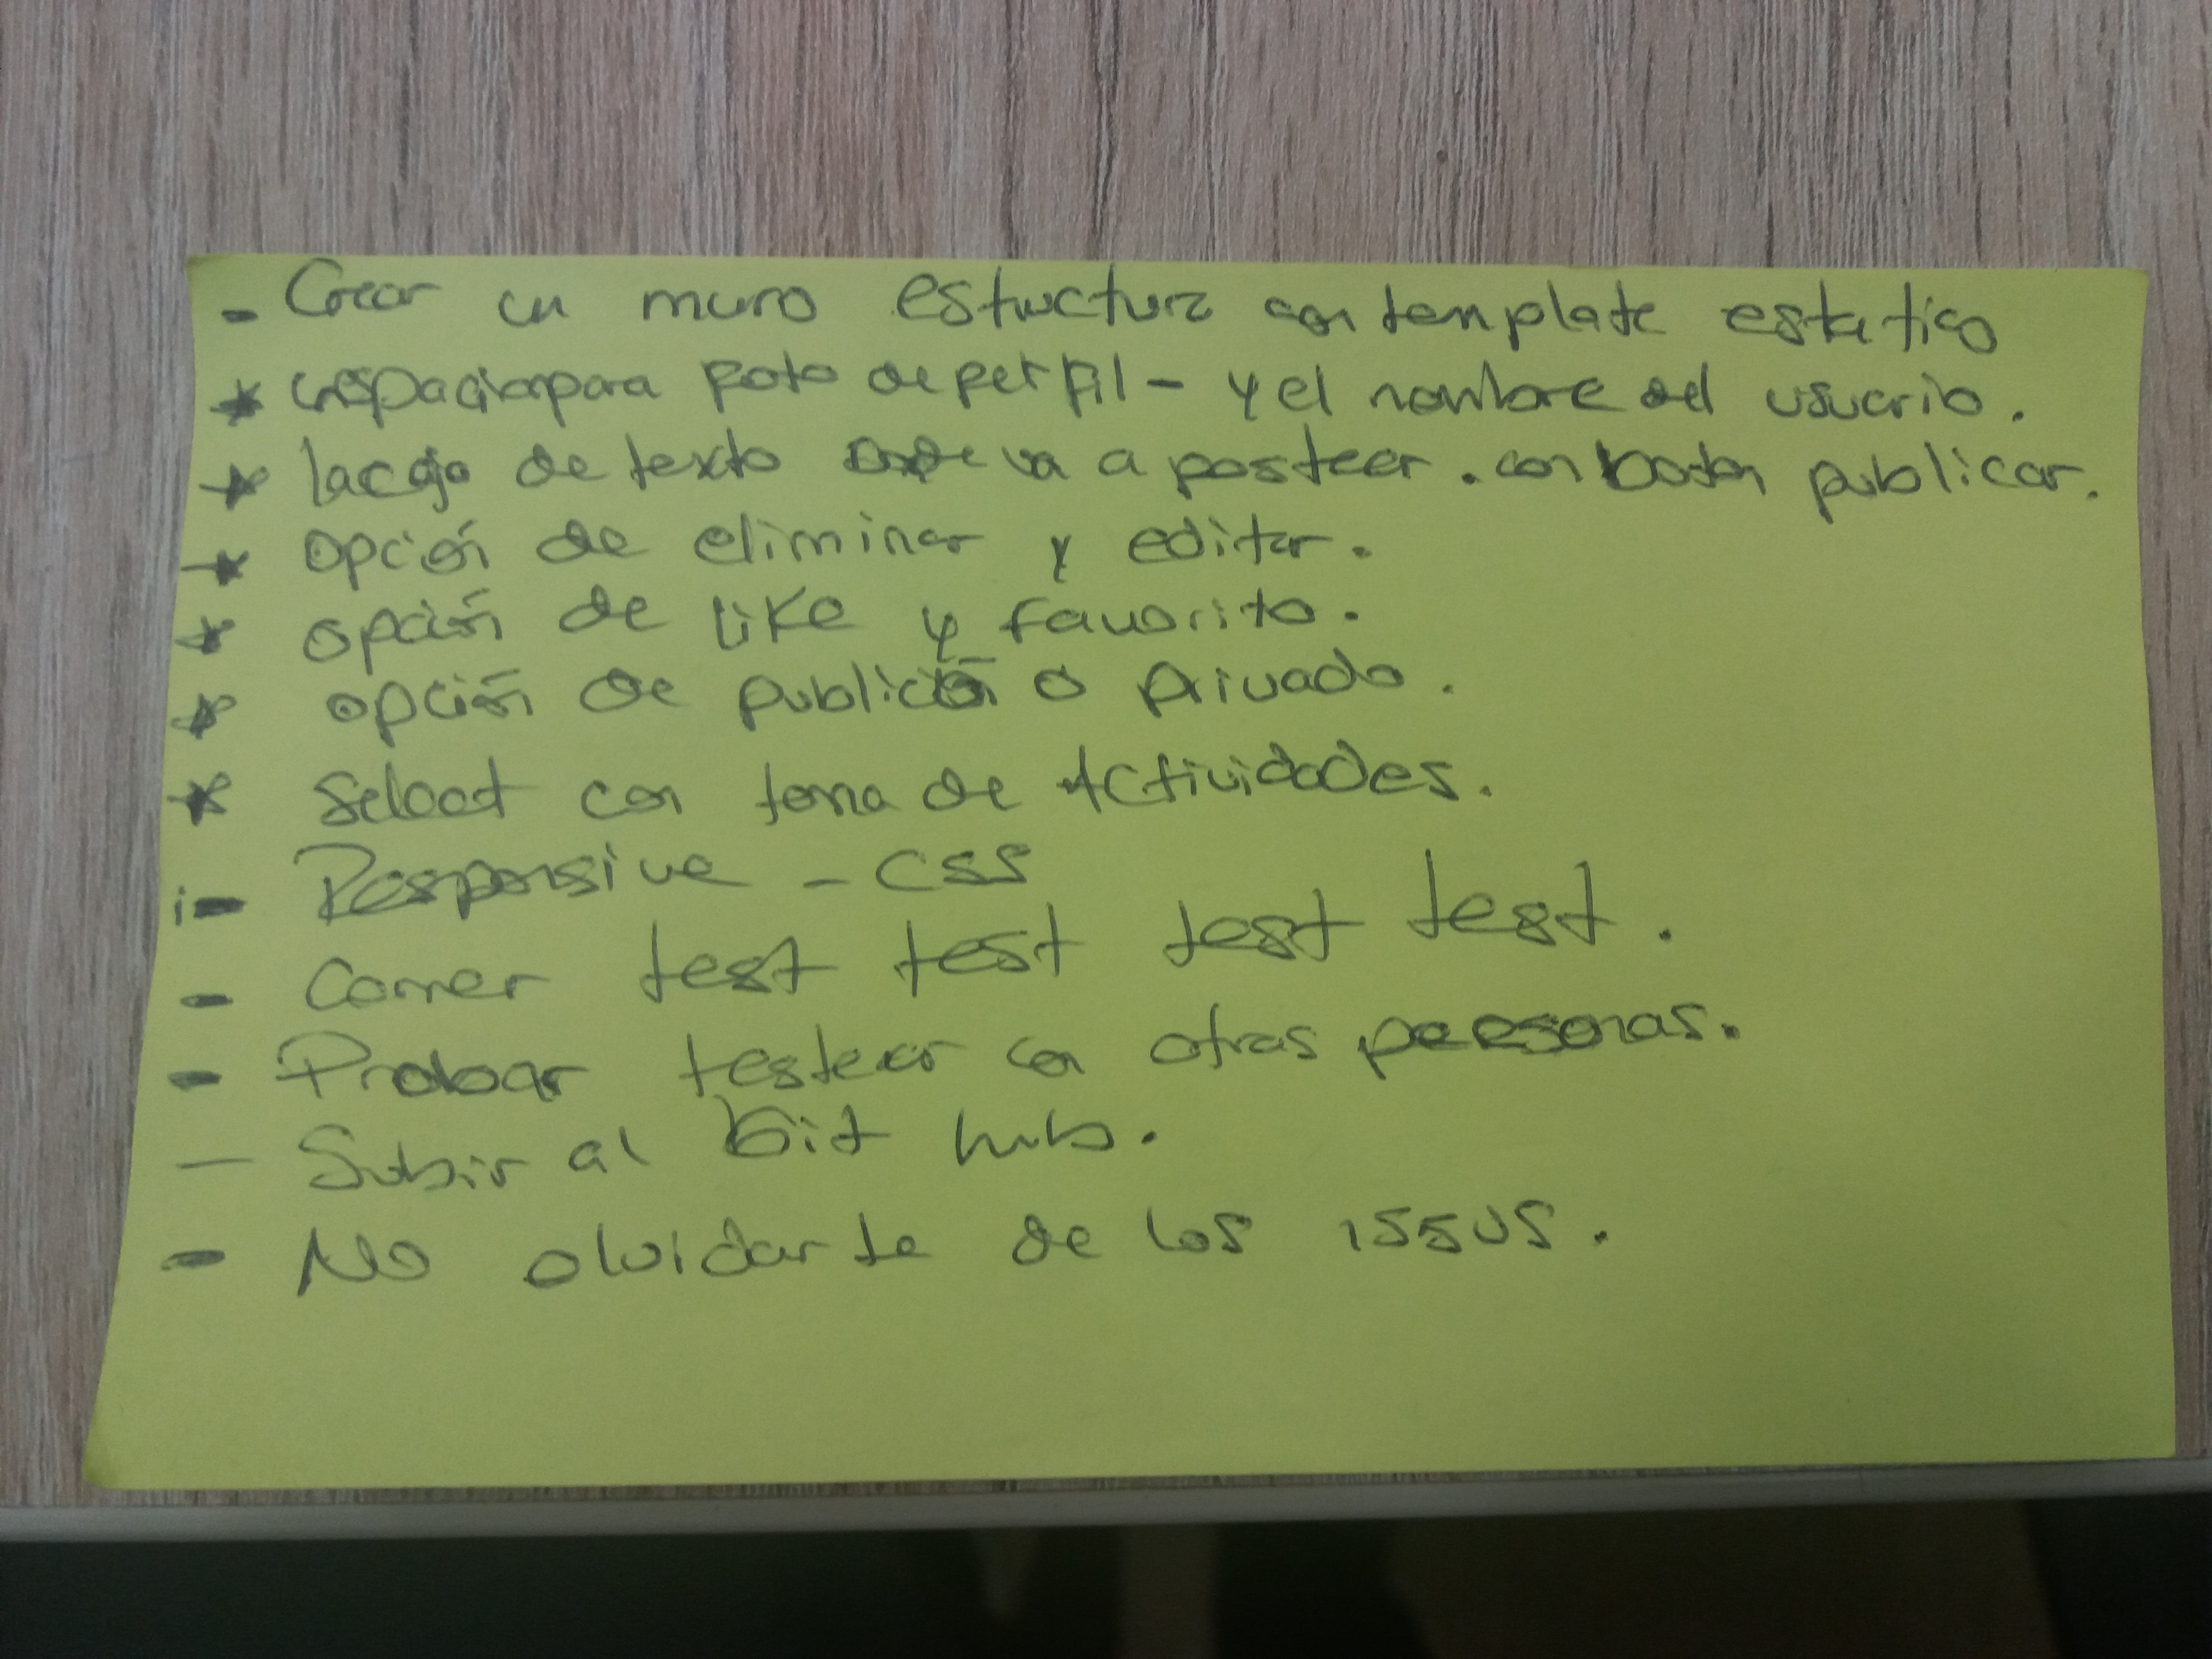 - Crear un muro estructura con template estatico
* un espacio para foto de perfil - y el nombre del usuario.
* la caja de texto donde va a postear. con boton publicar.
* opción de eliminar y editar.
* opción de like y favorito.
* opción de publico o privado.
* Select con tema de Actividades.
- Responsive - CSS
- Correr test test test test.
- Probar testear con otras personas.
- Subir al Git hub.
- No olvidarte de los issus.